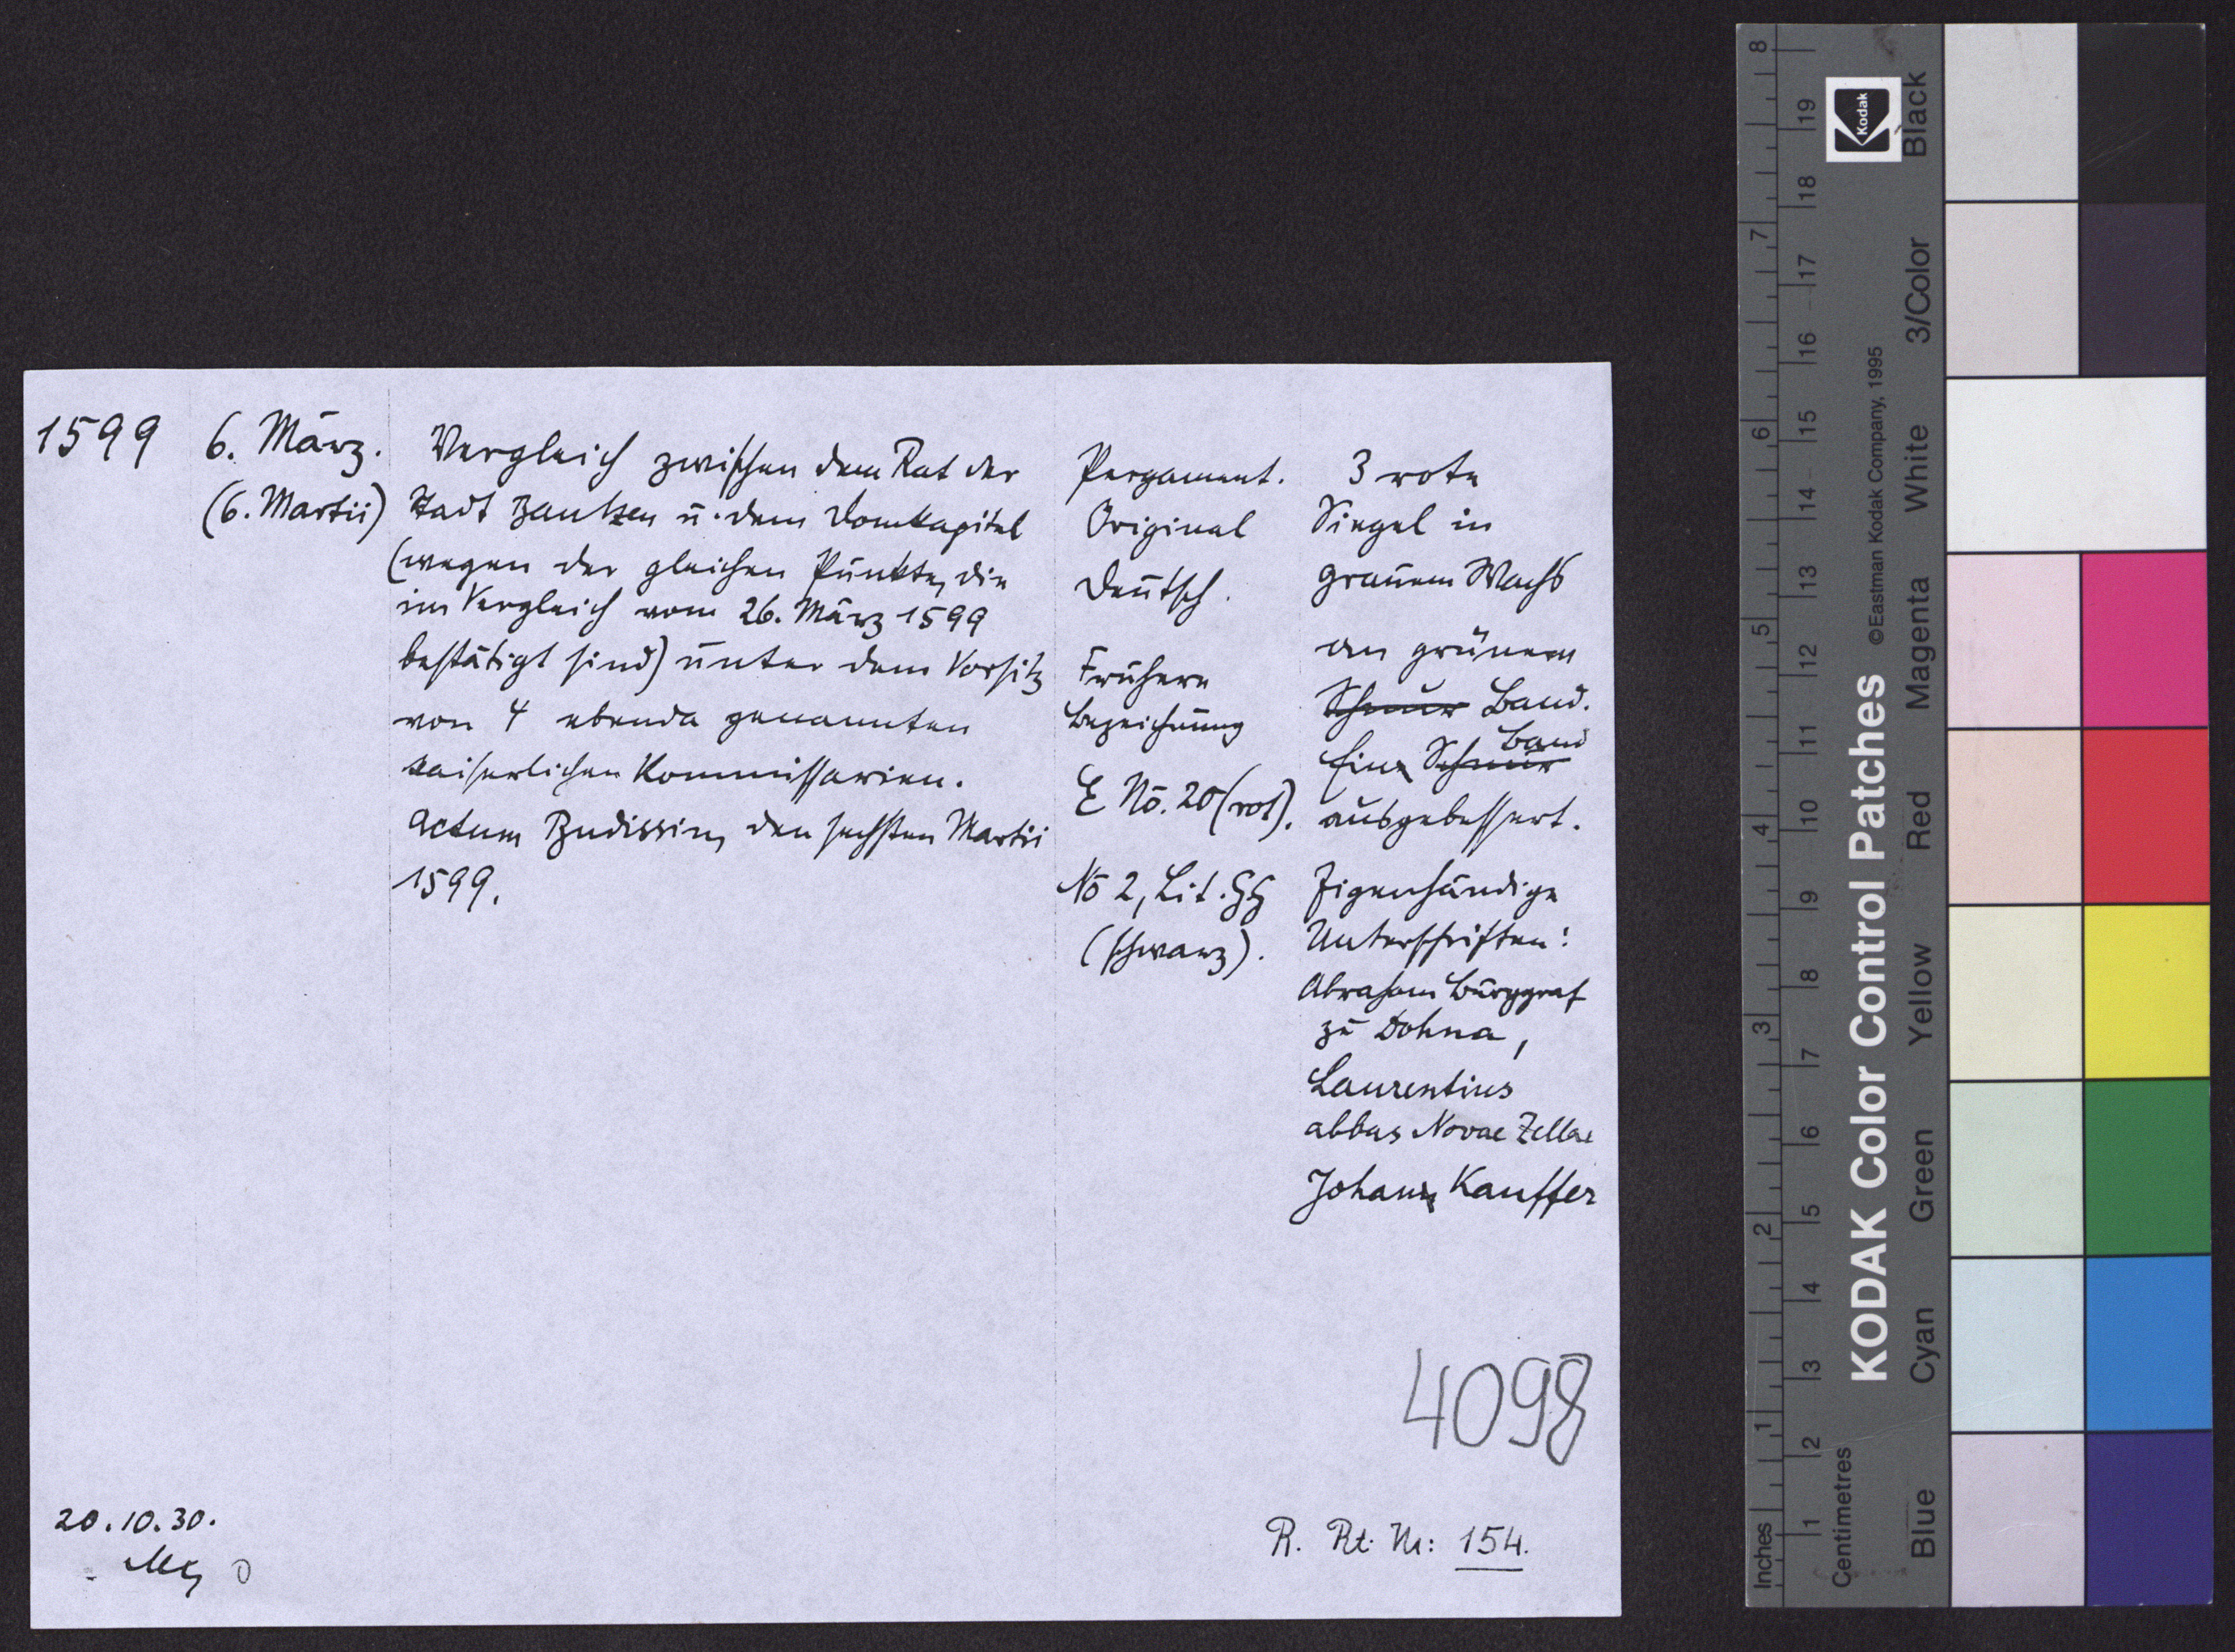 1599
6. März.
(6. Martii)
Vergleich zwischen dem Rat der
Stadt Bautzen u. dem Domkapitel
(wegen der gleichen Punkte, die
im Vergleich vom 26. März 1599
bestätigt sind) unter dem Vorsitz
von 4 ebenda genannten
kaiserlichen Kommissarien.
Actum Budissin, den sechsten Martii
1599.
Pergament.
Original
Deutsch.
Frühere
Bezeichnung
E No. 20 (rot).
No 2, Lit.
(schwarz).
3 rote
Siegel in
grauem Wachs
an grünem
Schnur Band.
Band
Ein Schnur
ausgebessert.
Eigenhändige
Unterschriften:
Abraham Burggraf
zu Dohna,
Laurentius
abbas Novae Zellae
Johann Kauffer
4098
20.10.30.
R. Rt. Nr: 154.
KODAK Color Control Patches
©Eastman Kodak Company, 1995
Kodak
Inches
1 2 3 4 5 6 7 8
Centimetres
1 2 3 4 5 6 7 8 9 10 11 12 13 14 15 16 17 18 19
Blue Cyan Green Yellow Red Magenta White 3/Color Black